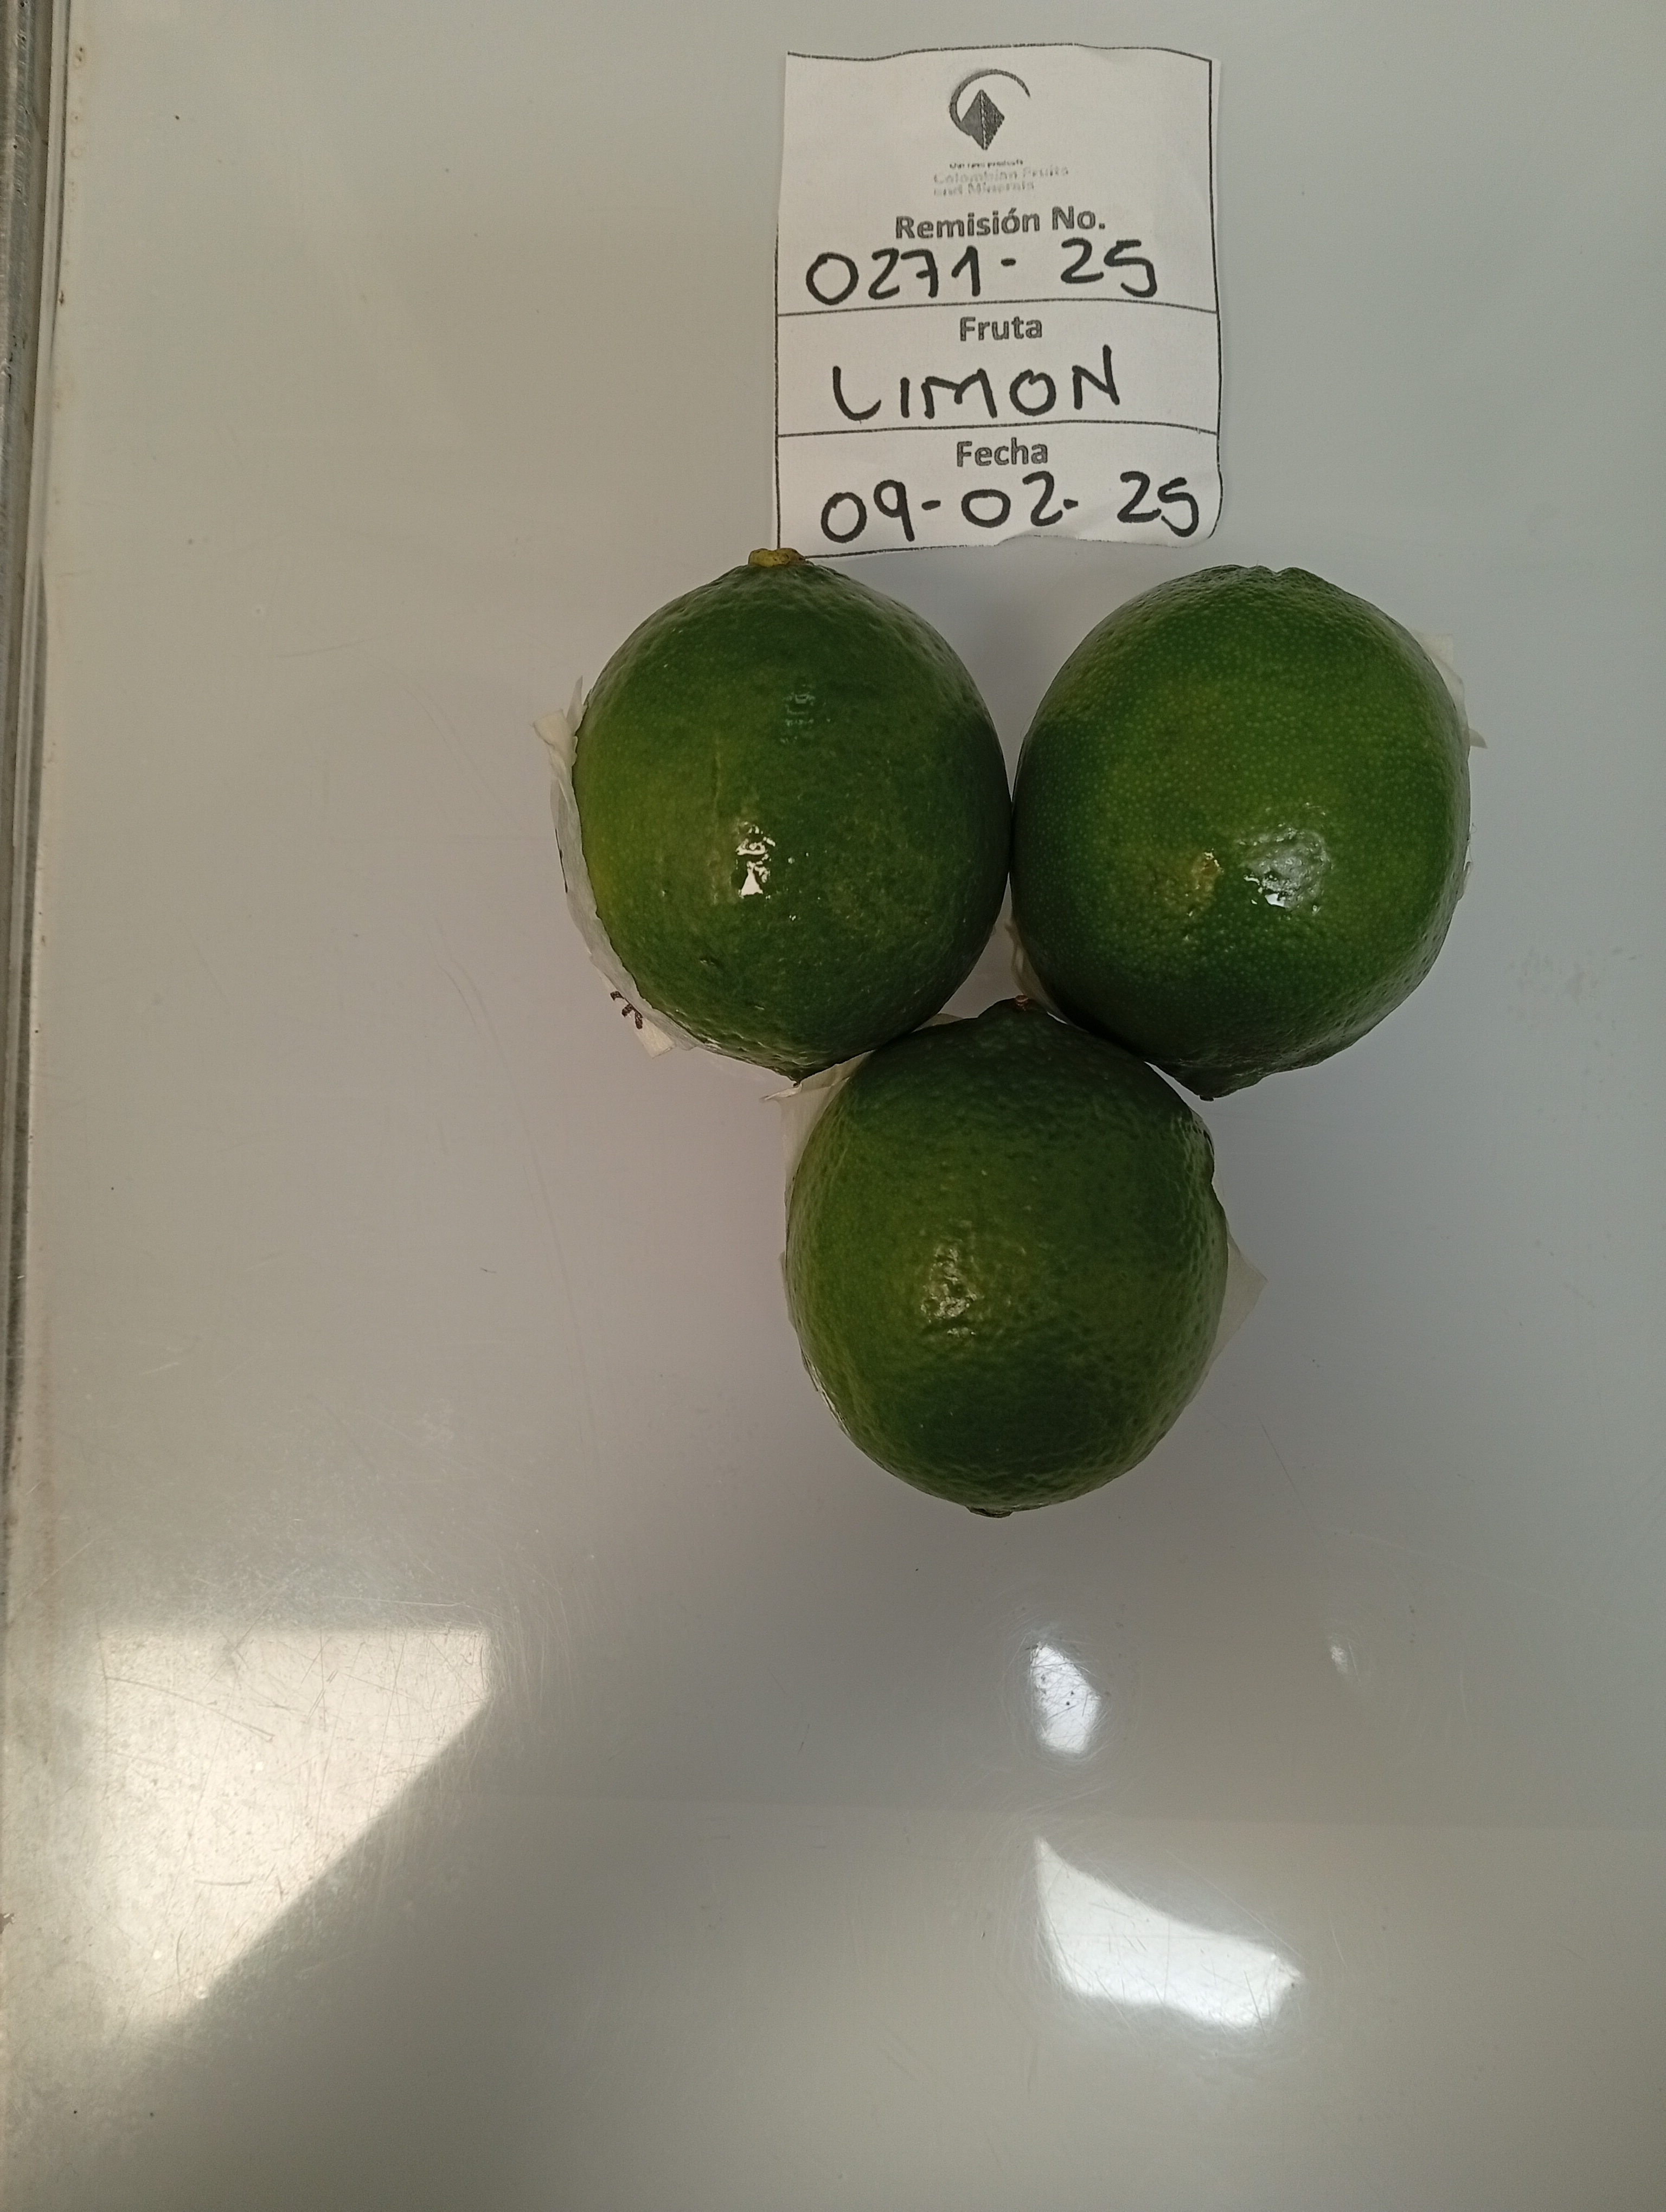 Colombian Fruits
and Minerals
Remisión No.
0271- 25
Fruta
LIMON
Fecha
09-02- 25